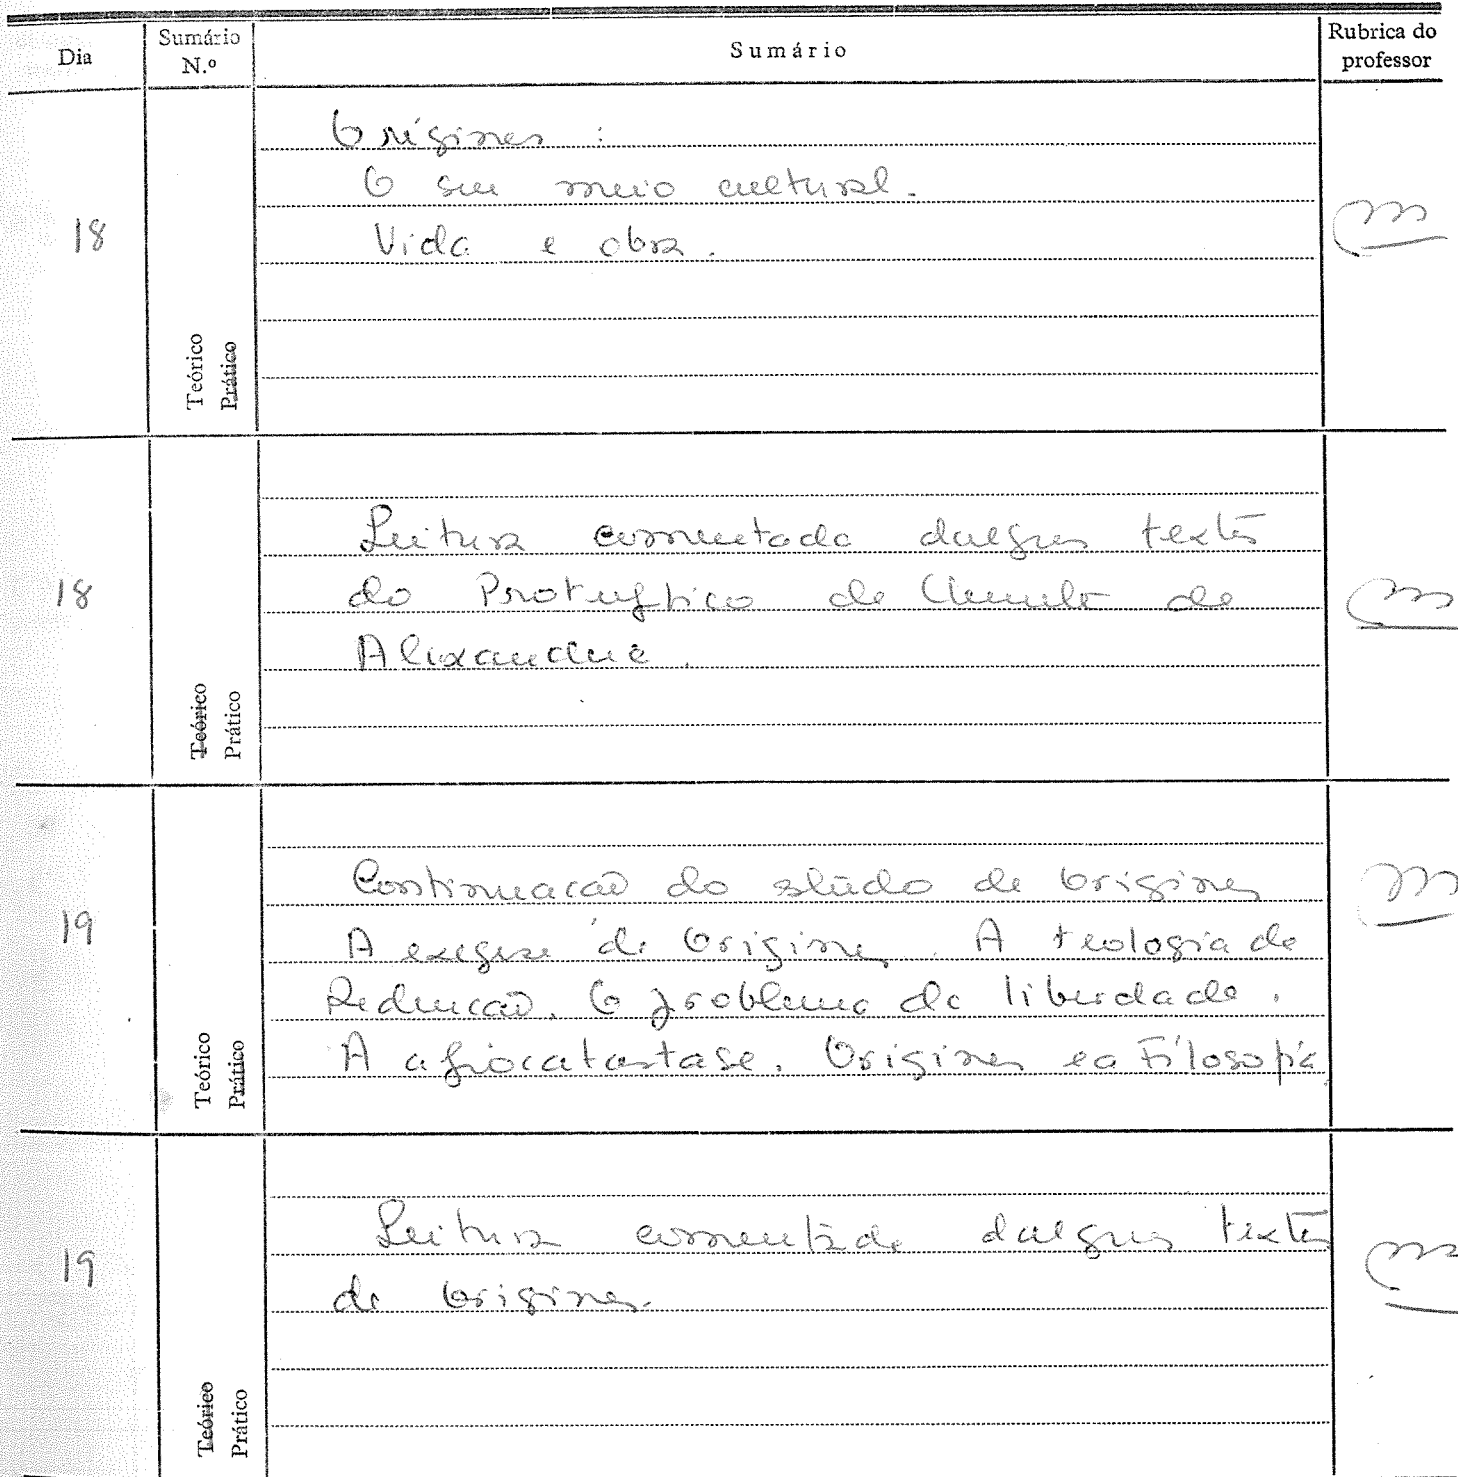 Dia Sumário N.º Sumário Rubrica do professor
Orígines :
O seu meio cultural.
18 Vida e obra.
Teórico
Prático
Leitura comentada dalguns textos
18 do Protréptico de Clemente de
Alexandria.
Teórico
Prático
Continuação do estudo de Orígines
19 A exegese de Orígines. A teologia da
Redenção. O problema da liberdade.
A apocatastase. Orígines e a Filosofia.
Teórico
Prático
Leitura comentada dalguns textos
19 de Orígines.
Teórico
Prático